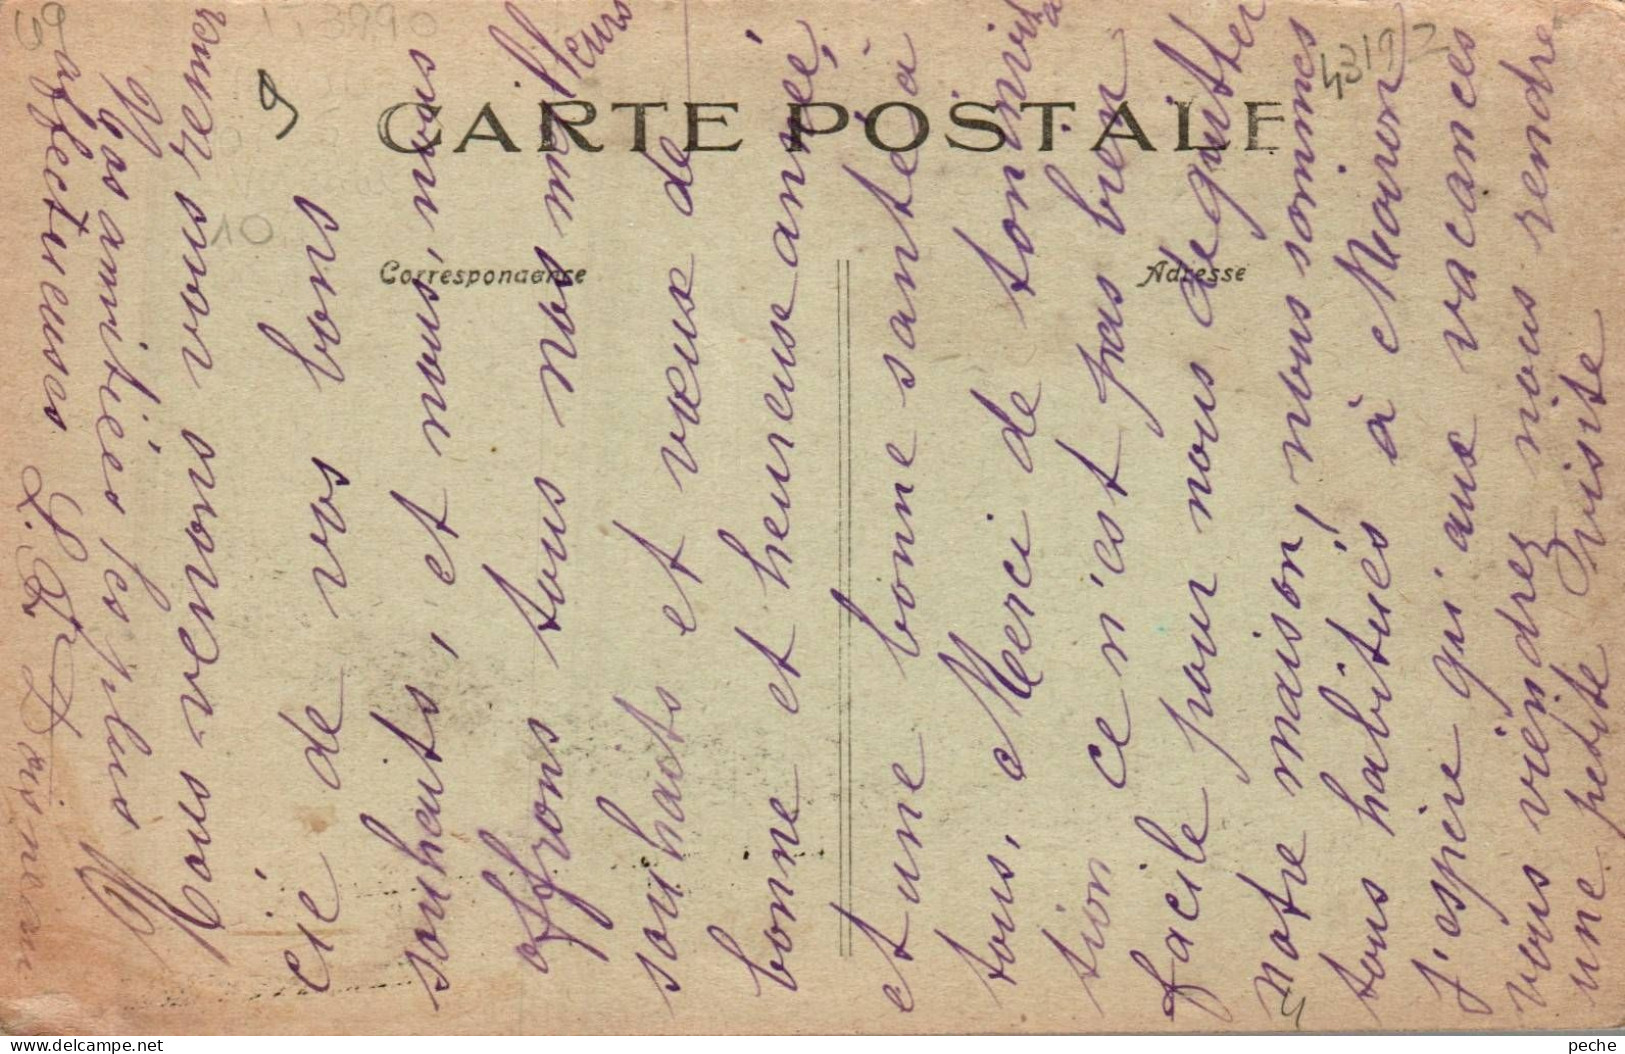 CARTE POSTALE
Correspondance
Adresse
Nous venons vous remer
cié de vos bons
souhaits, et nous, nous
offrons tous nos meilleurs
souhaits et vœux de
bonne et heureuse année,
et une bonne santé à
tous, Merci de ton invita
tion ce n'est pas bien
facile pour nous de quitter
notre maison, nous sommes
tous habitués à Moiron
J'espère qui aux vacances
vous viendrez nous rendre
une petite visite
Nos amitiés les plus
affectueuses
69
9
10
43192
peche